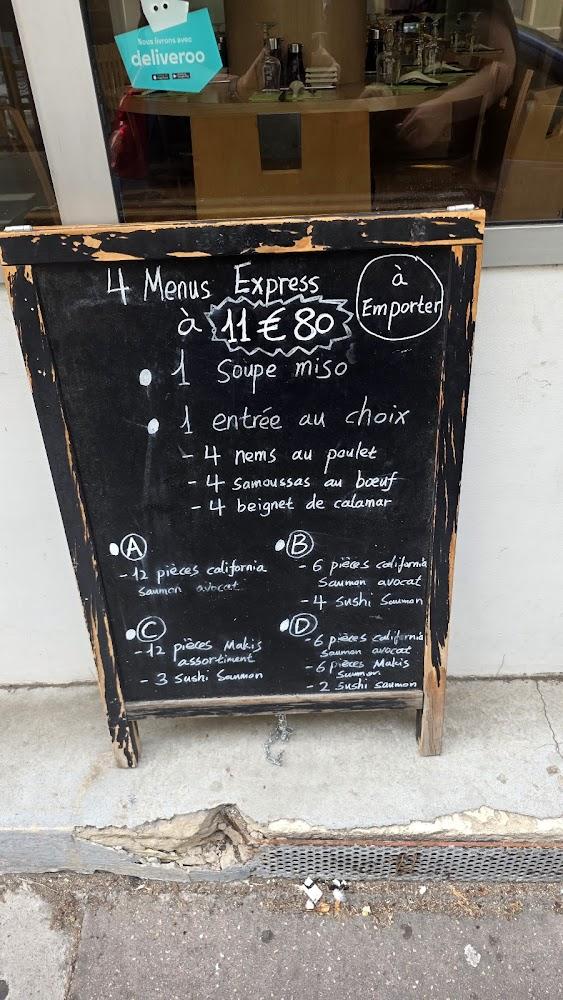 Nous livrons avec
deliveroo
4 Menus Express
à 11 € 80
à
Emporter
• 1 Soupe miso
• 1 entrée au choix
- 4 nems au poulet
- 4 samoussas au bœuf
- 4 beignet de calamar
• A
- 12 pièces california
saumon avocat
• B
- 6 pièces california
saumon avocat
- 4 sushi saumon
• C
- 12 pièces Makis
assortiment
- 3 sushi saumon
• D
- 6 pièces california
saumon avocat
- 6 pièces Makis
saumon
- 2 sushi saumon